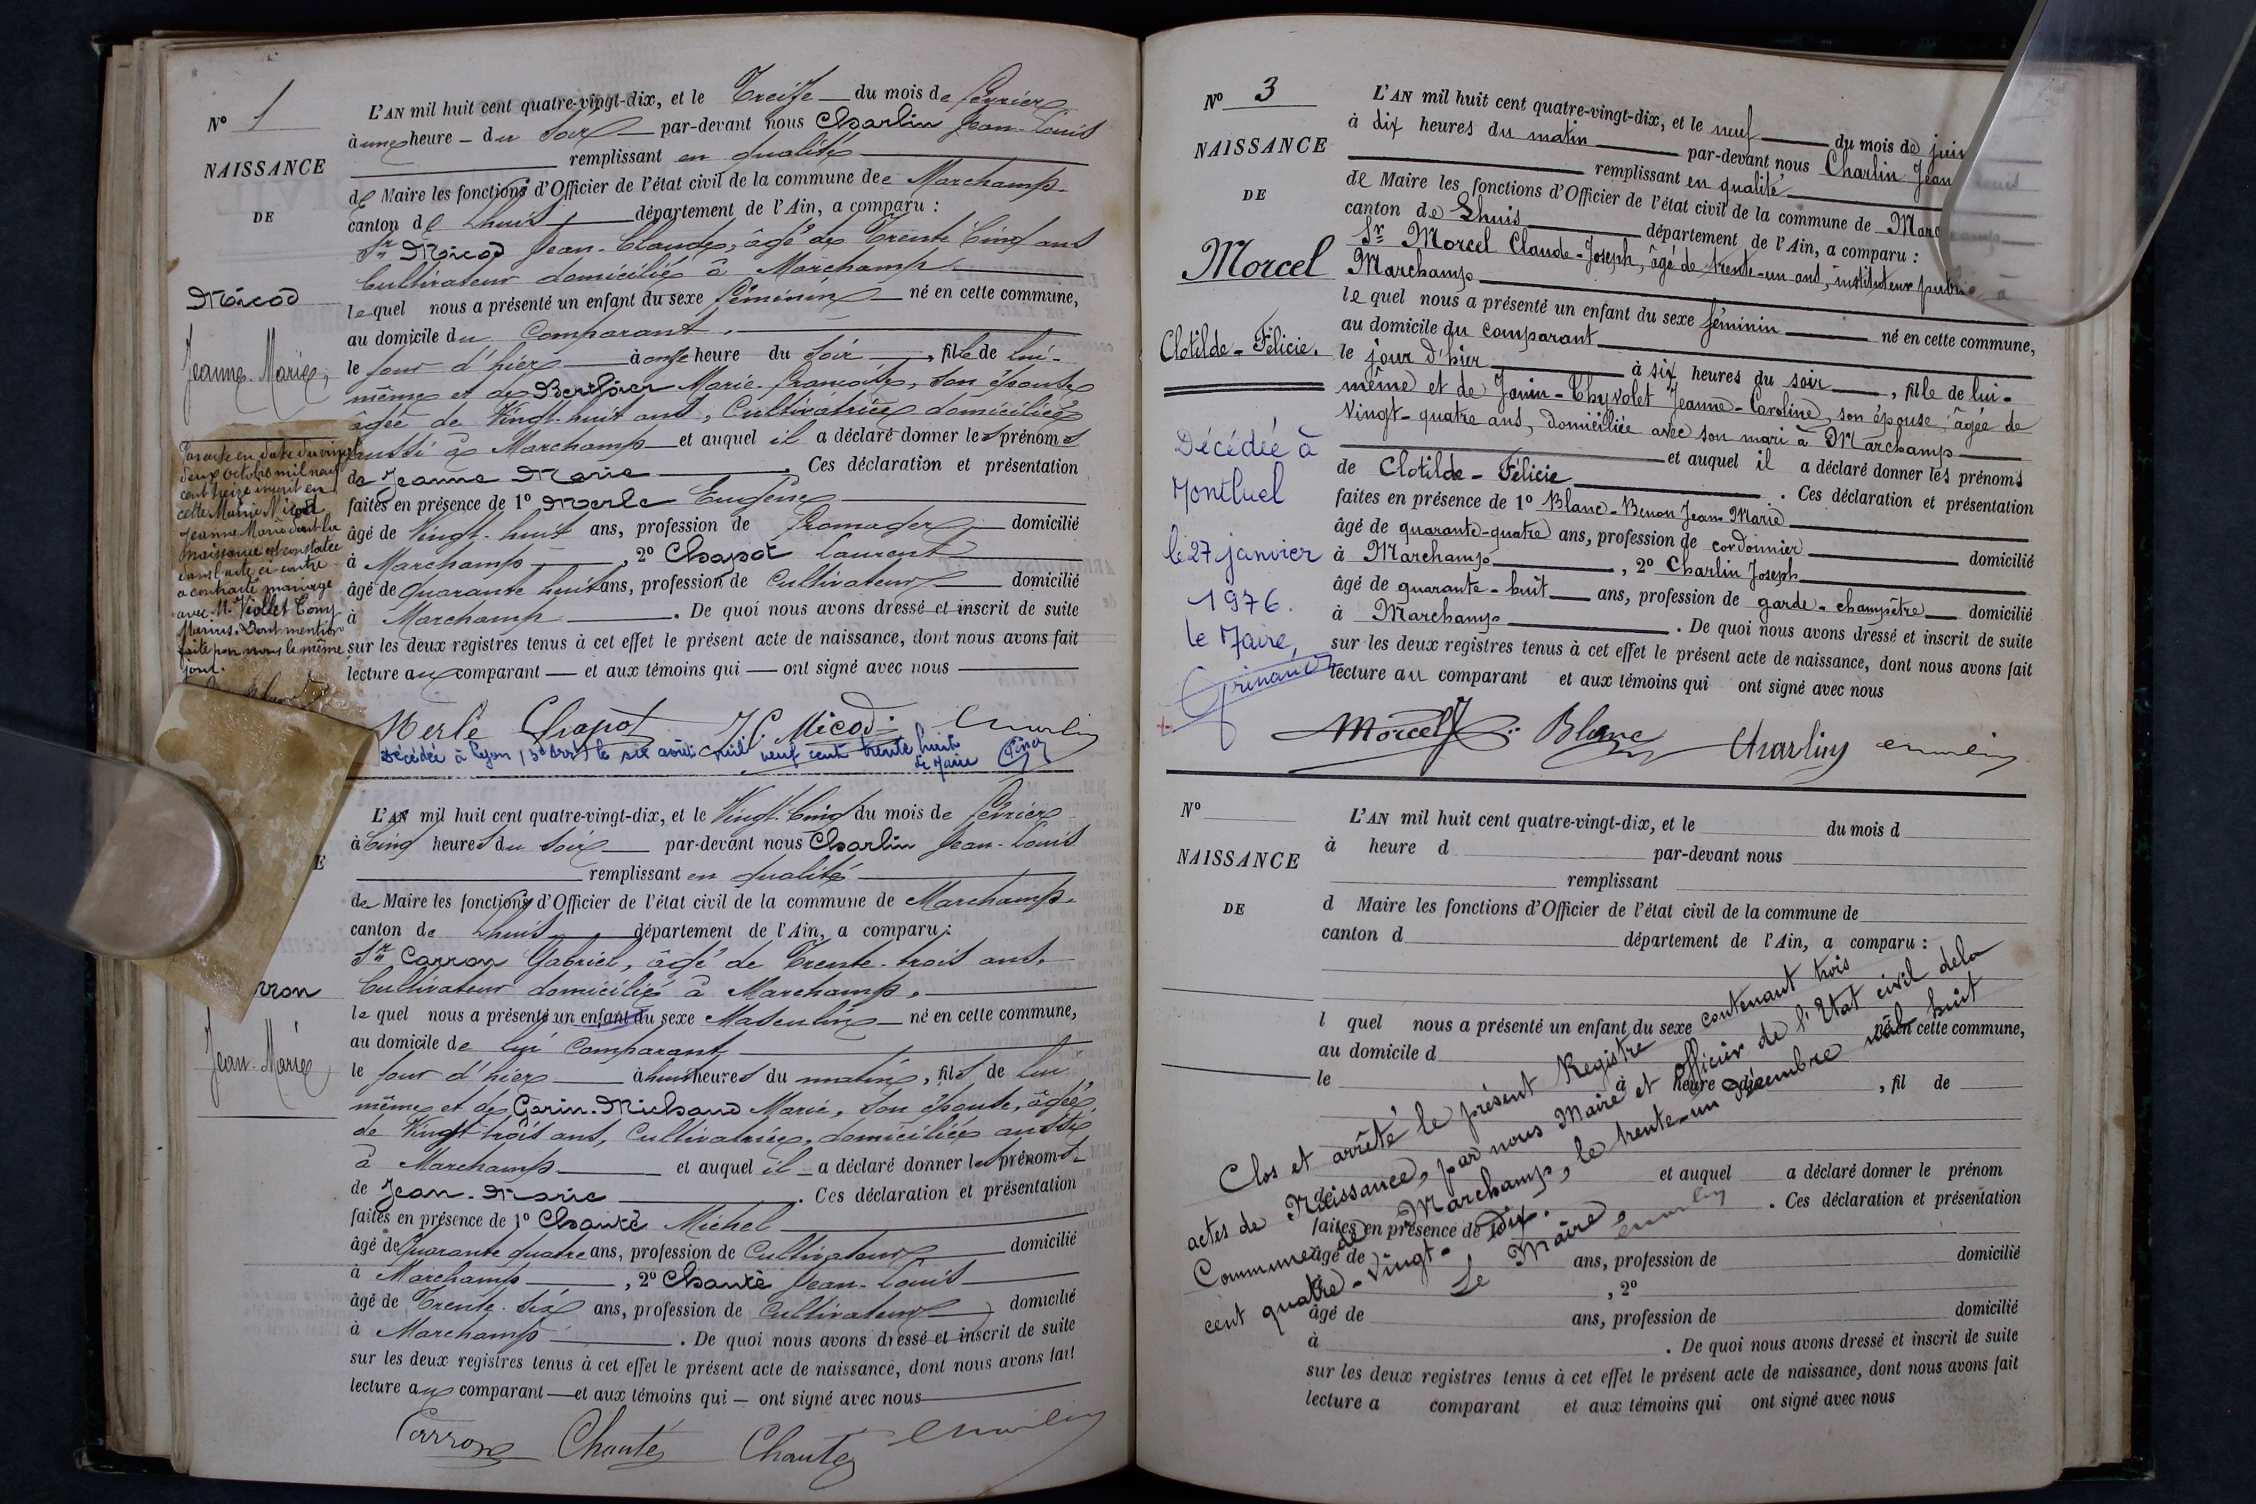 N° 1
NAISSANCE
DE
Micod
Jeanne-Marie,
L'AN mil huit cent quatre-vingt-dix, et le Treize du mois de février
à une heure du soir par-devant nous Charlin Jean-Louis
remplissant en qualité
de Maire les fonctions d'Officier de l'état civil de la commune de Marchamp
canton de Lhuis, département de l'Ain, a comparu :
Sr Micod Jean-Claude, âgé de Trente Cinq ans
Cultivateur domicilié à Marchamp
lequel nous a présenté un enfant du sexe féminin né en cette commune,
au domicile du Comparant,
le jour d'hier à onze heure du soir, fille de lui-
même et de Berthier Marie-françoise, son épouse
âgée de Vingt-huit ans, Cultivatrice domiciliée
aussi à Marchamp et auquel il a déclaré donner les prénoms
de Jeanne Marie. Ces déclaration et présentation
faites en présence de 1° Merle Eugène
âgé de Vingt-huit ans, profession de fromager domicilié
à Marchamp, 2° Chapot Laurent
âgé de Quarante huit ans, profession de Cultivateur domicilié
à Marchamp. De quoi nous avons dressé et inscrit de suite
sur les deux registres tenus à cet effet le présent acte de naissance, dont nous avons fait
lecture au comparant et aux témoins qui ont signé avec nous
Merle Chapot J.C. Micod Charlin
Décédée à Lyon (3e Arrt) le six août mil neuf cent trente huit
Le Maire
Par acte en date du vingt
deux octobre mil neuf
cent treize inscrit en
cette Mairie Micod
Jeanne Marie dont la
naissance est constatée
dans l'acte ci-contre
a contracté mariage
avec M. Viollet Tony
Marius. Dont mention
faite par nous le même
jour.
E
rron
Jean-Marie
L'AN mil huit cent quatre-vingt-dix, et le Vingt-Cinq du mois de février
à Cinq heures du soir par-devant nous Charlin Jean-Louis
remplissant en qualité
de Maire les fonctions d'Officier de l'état civil de la commune de Marchamp
canton de Lhuis département de l'Ain, a comparu :
Sr Carron Gabriel, âgé de Trente-trois ans,
Cultivateur domicilié à Marchamp,
lequel nous a présenté un enfant du sexe Masculin né en cette commune,
au domicile de lui Comparant
le jour d'hier à huit heures du matin, fils de lui
même et de Gorin-Michaud Marie, son épouse, âgée
de Vingt-trois ans, Cultivatrice, domiciliée aussi
à Marchamp et auquel il a déclaré donner les prénoms
de Jean-Marie. Ces déclaration et présentation
faites en présence de 1° Chanté Michel
âgé de Quarante quatre ans, profession de Cultivateur domicilié
à Marchamp, 2° Chanté Jean-Louis
âgé de Trente-six ans, profession de Cultivateur domicilié
à Marchamp. De quoi nous avons dressé et inscrit de suite
sur les deux registres tenus à cet effet le présent acte de naissance, dont nous avons fait
lecture au comparant et aux témoins qui ont signé avec nous
Carron Chanté Chanté Charlin
N° 3
NAISSANCE
DE
Morcel
Clotilde-Félicie.
Décédée à
Montluel
le 27 janvier
1976.
Le Maire,
L'AN mil huit cent quatre-vingt-dix, et le neuf du mois de juin
à dix heures du matin par-devant nous Charlin Jean
remplissant en qualité
de Maire les fonctions d'Officier de l'état civil de la commune de Marc
canton de Lhuis département de l'Ain, a comparu :
Sr Morcel Claude-Joseph, âgé de trente-un ans, instituteur public, à
Marchamp
lequel nous a présenté un enfant du sexe féminin né en cette commune,
au domicile du comparant
le jour d'hier à six heures du soir, fille de lui-
même et de Janin-Thyvolet Jeanne-Caroline, son épouse, âgée de
vingt-quatre ans, domiciliée avec son mari à Marchamp
et auquel il a déclaré donner les prénoms
de Clotilde-Félicie. Ces déclaration et présentation
faites en présence de 1° Blanc-Benon Jean Marie
âgé de quarante-quatre ans, profession de cordonnier domicilié
à Marchamp, 2° Charlin Joseph
âgé de quarante-huit ans, profession de garde-champêtre domicilié
à Marchamp. De quoi nous avons dressé et inscrit de suite
sur les deux registres tenus à cet effet le présent acte de naissance, dont nous avons fait
lecture au comparant et aux témoins qui ont signé avec nous
Morcel Blanc Charlin Charlin
N°
NAISSANCE
DE
L'AN mil huit cent quatre-vingt-dix, et le du mois d
à heure d par-devant nous
remplissant
d Maire les fonctions d'Officier de l'état civil de la commune de
canton d département de l'Ain, a comparu :
l quel nous a présenté un enfant du sexe né en cette commune,
au domicile d
le à heure d, fil de
et auquel a déclaré donner le prénom
de . Ces déclaration et présentation
faites en présence de 1°
âgé de ans, profession de domicilié
à , 2°
âgé de ans, profession de domicilié
à . De quoi nous avons dressé et inscrit de suite
sur les deux registres tenus à cet effet le présent acte de naissance, dont nous avons fait
lecture a comparant et aux témoins qui ont signé avec nous
Clos et arrêté le présent Registre contenant trois
actes de Naissance, par nous Maire et officier de l'Etat civil de la
Commune de Marchamp, le trente-un décembre mil huit
cent quatre-vingt-dix.
Le Maire,
Charlin